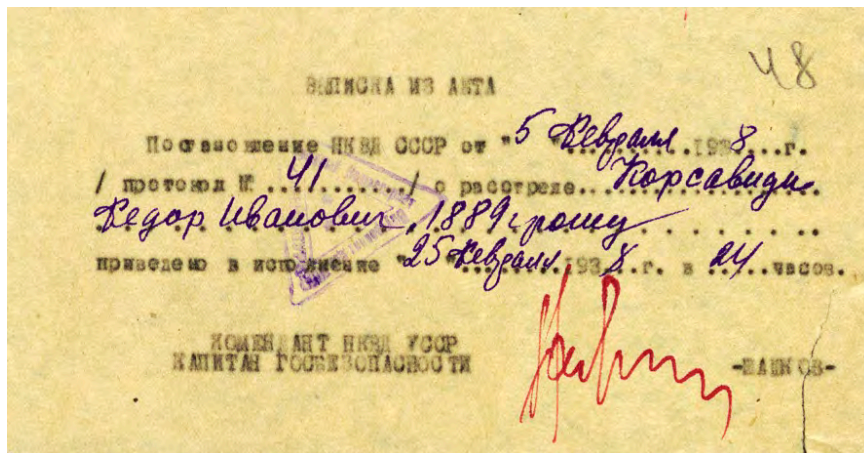 48
ВЫПИСКА ИЗ АКТА
Постановление НКВД СССР от "5 Февраля 1938 г.
/ протокол № 41 / о расстреле Корсавиди
Федор Иванович, 1889 г рожд
приведено в исполнение "25 Февраля 1938 г. в 24 часов.
КОМЕНДАНТ НКВД УССР
КАПИТАН ГОСБЕЗОПАСНОСТИ -ШАШКОВ-